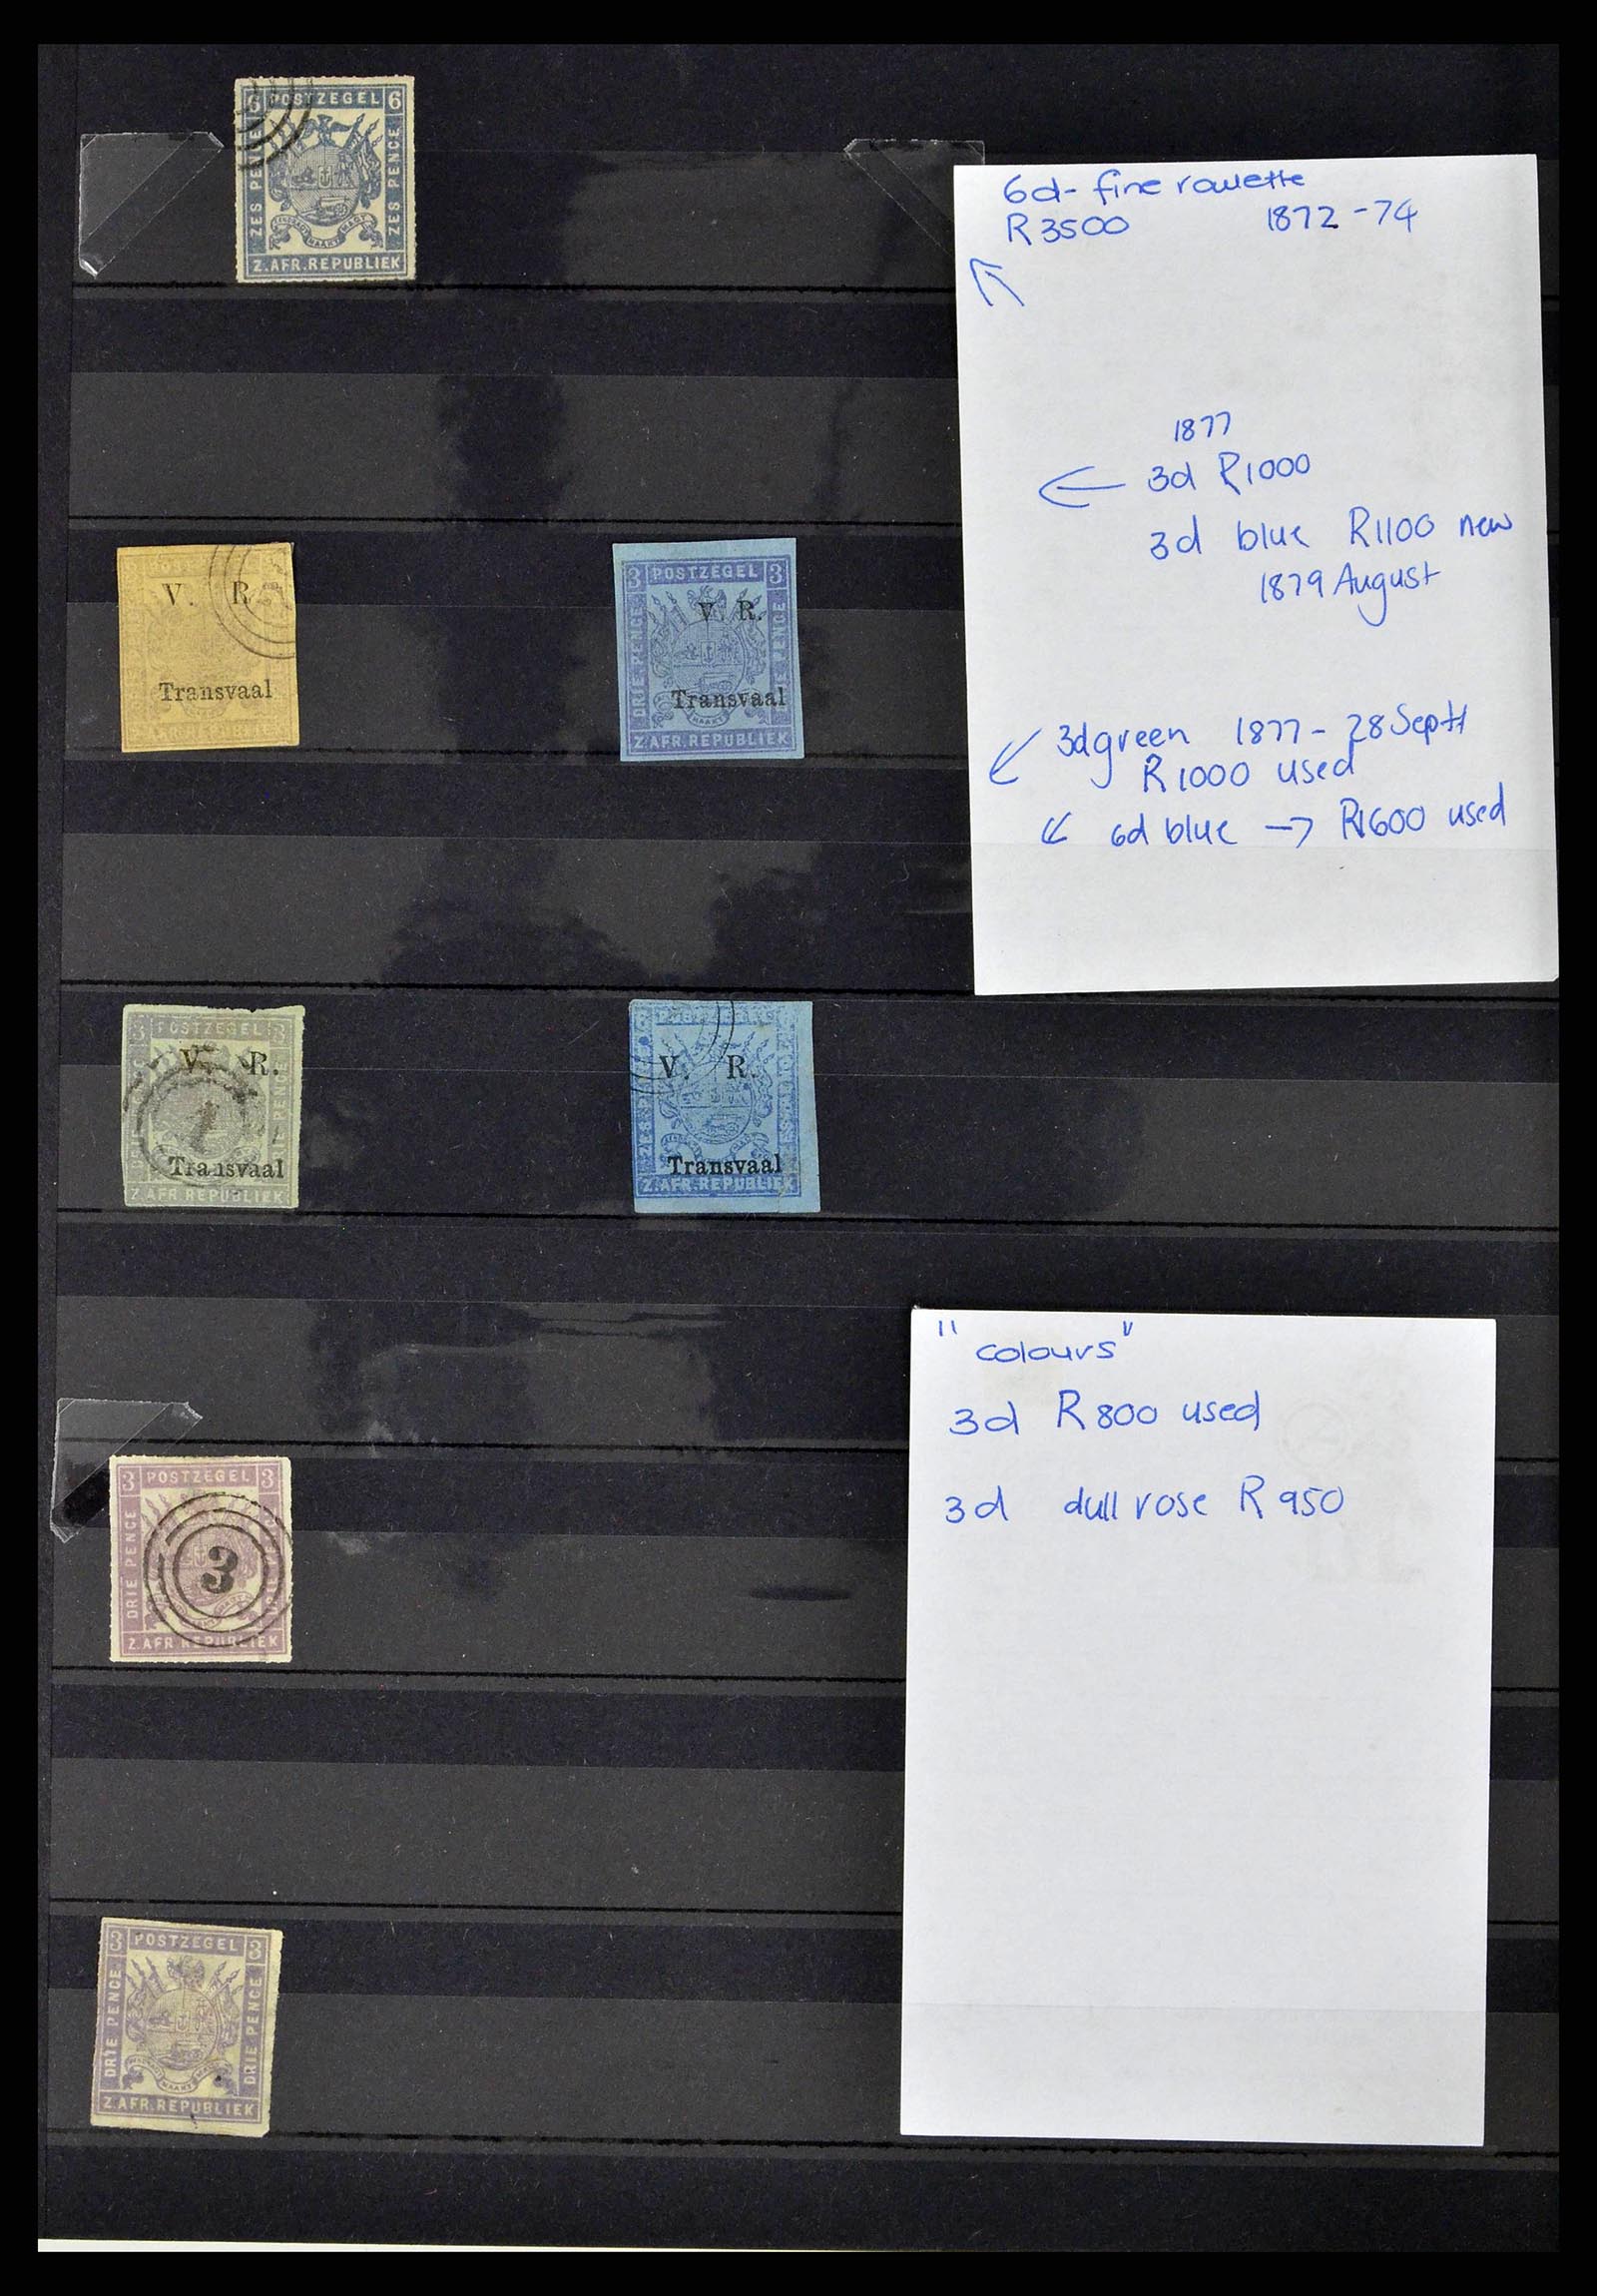 6 POSTZEGEL 6
ZES PENCE
ZES PENCE
Z.AFR.REPUBLIEK
6d - fine roulette
R3500 1872-74
1877
3d R1000
3d blue R1100 new
1879 August
3d green 1877 - 28 Sept
R1000 used
6d blue → R1600 used
V. R.
Transvaal
3 POSTZEGEL 3
DRIE PENCE
V. R.
Transvaal
Z.AFR.REPUBLIEK
3 POSTZEGEL 3
V. R.
1
Transvaal
Z.AFR.REPUBLIEK
V. R.
Transvaal
Z.AFR.REPUBLIEK
"colours"
3d R800 used
3d dull rose R950
3 POSTZEGEL 3
DRIE PENCE
3
Z.AFR.REPUBLIEK
3 POSTZEGEL 3
DRIE PENCE
DRIE PENCE
Z.AFR.REPUBLIEK